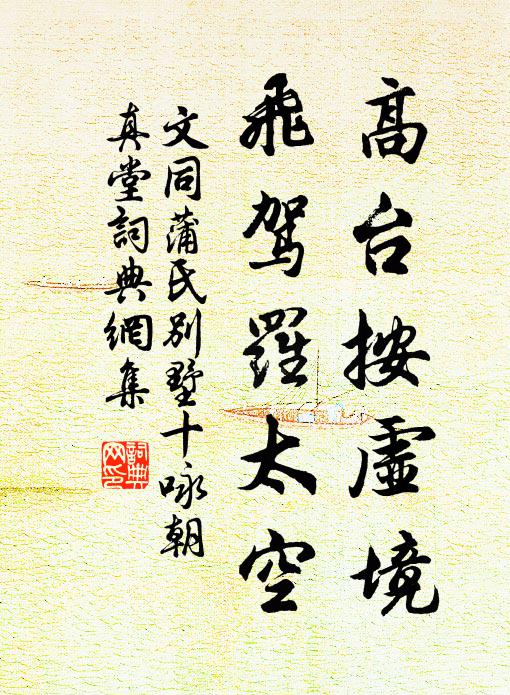 高台按虛境
飛駕羅太空
文同蒲氏別墅十咏朝
真堂詞典網集
詞典
网印